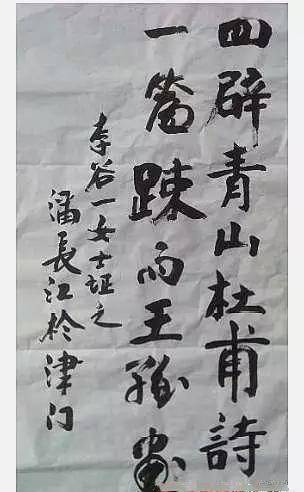 四辟青山杜甫詩
一窗踈雨王維畫
李谷一女士证之
潘長江於津门